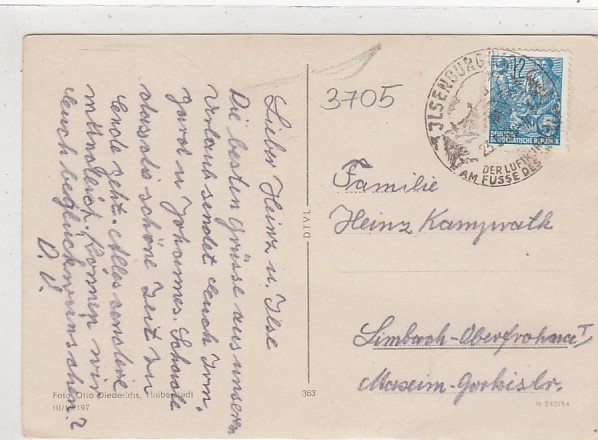 Lieber Heinz u. Ilse
Die besten Grüsse aus unserem
Urlaub sendet Euch Irm-
gard u. Johannes. Schade
dass die schöne Zeit zu
Ende geht. Alles
Können wir
Euch beglückwünschen?
D. O.
3705
ILSENBURG
DER LUFTKUR
AM FUSSE DES
12
23
DEUTSCHE
DEMOKRATISCHE REPUBLIK
Familie
Heinz Kampwath
Limbach-Oberfrohna I
Maxim-Gorkistr.
Foto: Otto Diederichs, Halberstadt
363